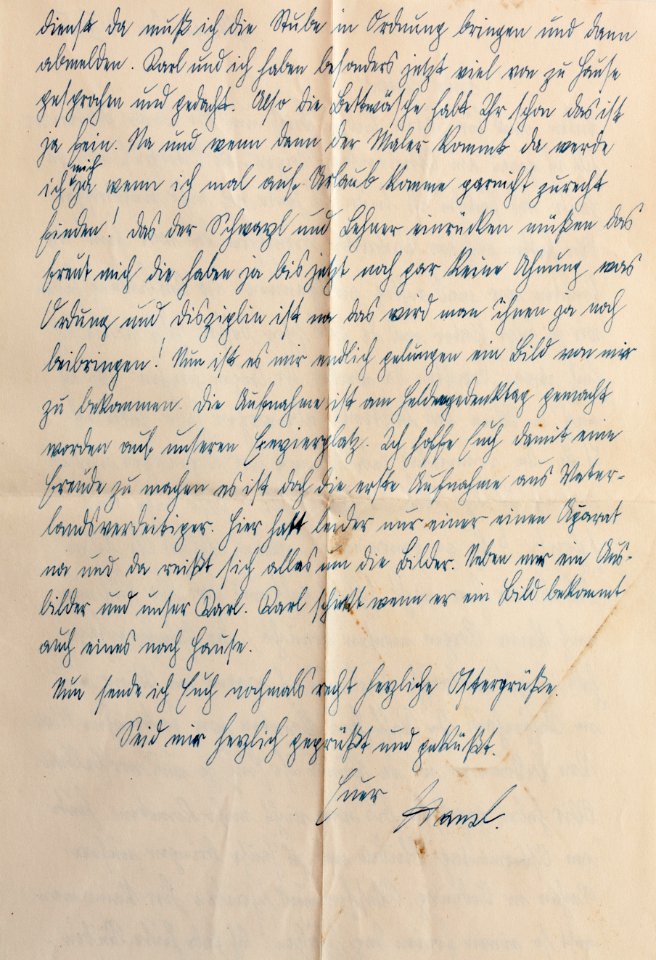 dienst da muß ich die Stube in Ordnung bringen und dann
abmelden. Karl und ich haben besonders jetzt viel von zu Hause
gesprochen und gedacht. Also die Bettwäsche habt Ihr schon das ist
ja fein. Na und wenn dann der Maler kommt da werde
ich mich ja wenn ich mal auf Urlaub komme garnicht zurecht
finden! das der Schwarzl und Lehner einrücken müßen das
freut mich die haben ja bis jetzt noch gar keine Ahnung was
Ordung und disziplin ist na das wird man ihnen ja noch
beibringen! Nun ist es mir endlich gelungen ein Bild von mir
zu bekommen. die Aufnahme ist am Heldengedenktag gemacht
worden auf unseren Exerzierplatz. Ich hoffe Euch damit eine
Freude zu machen es ist doch die erste Aufnahme aus Vater-
landsverdeitiger. Hier hatt leider nur einer einen Aparat
na und da reißt sich alles um die Bilder. Neben mir ein Aus-
bilder und unser Karl. Karl schickt wenn er ein Bild bekommt
auch eines nach Hause.
Nun sende ich Euch nochmals recht herzliche Ostergrüße.
Seid mir herzlich gegrüßt und geküßt.
Euer Franzl.